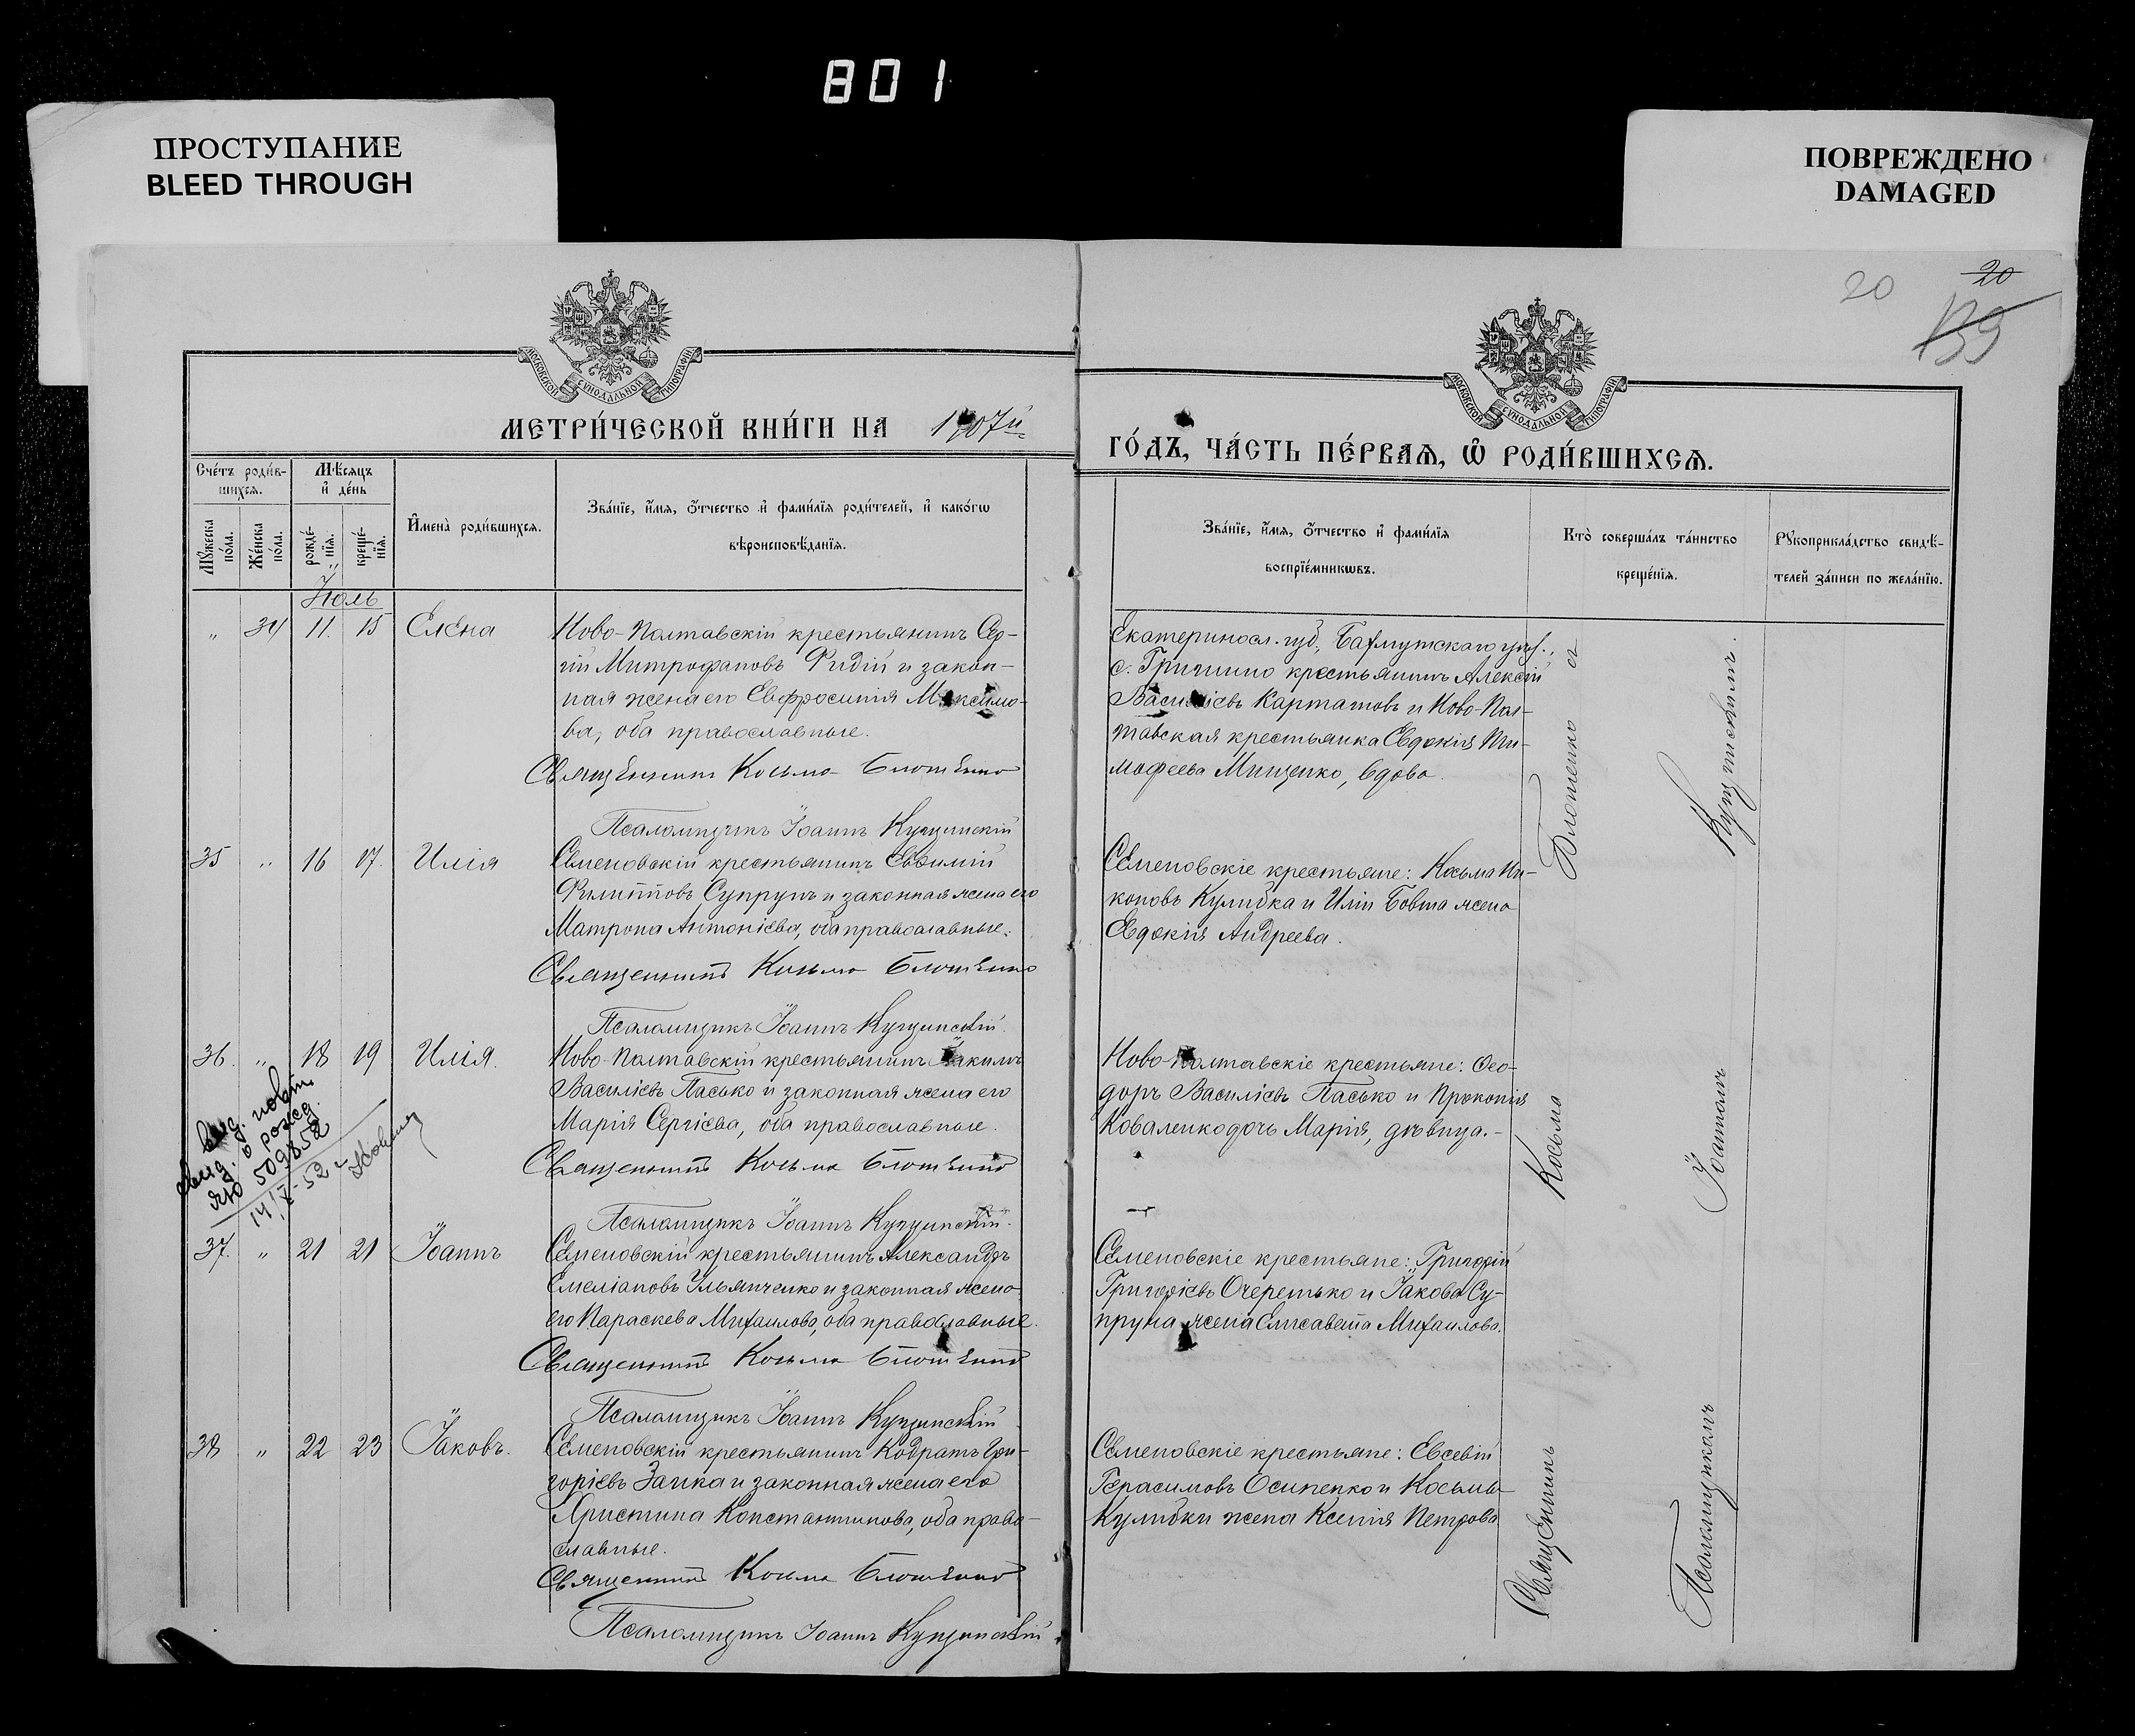 801
ПРОСТУПАНИЕ
BLEED THROUGH
ПОВРЕЖДЕНО
DAMAGED
20
20
139
МОСКОВСКОЙ СѴНОДАЛЬНОЙ ТИПОГРАФІИ
МОСКОВСКОЙ СѴНОДАЛЬНОЙ ТИПОГРАФІИ
МЕТРИ́ЧЕСКОЙ КНИ́ГИ НА 1907й
ГО́ДЪ, ЧА́СТЬ ПЕ́РВАѦ, Ѡ҆ РОДИ́ВШИХСѦ.
Сче́тъ роди́в-
шихсѧ.
Мѣ́сѧцъ
и҆ де́нь
Мꙋ́жеска по́ла.
Же́нска по́ла.
рожде́-нїѧ.
креще́-нїѧ.
И҆мена̀ роди́вшихсѧ.
Зва́нїе, и҆́мѧ, ѻ҆́тчество и҆ фами́лїѧ роди́телей, и҆ како́гѡ
вѣроисповѣ́данїѧ.
Зва́нїе, и҆́мѧ, ѻ҆́тчество и҆ фами́лїѧ
воспрїе́мникѡвъ.
Кто̀ соверша́лъ та́инство
креще́нїѧ.
Рꙋкоприкла́дство свидѣ́-
телей за́писи по жела́нїю.
Іюль
„ 34 11. 15 Елена
Ново-Полтавскій крестьянинъ Сер-
гій Митрофановъ Ридій и закон-
ная жена его Евфросинія Максимо-
ва, оба православные.
Священникъ Косьма Блошенко
Псаломщикъ Іоаннъ Кущинскій
Екатеринос. губ., Бахмутскаго уез.,
с. Гришино крестьянинъ Алексій
Василіевъ Карташовъ и Ново-Пол-
тавская крестьянка Евдокія Ти-
мофеева Мищенко, вдова.
35 „ 16 17. Илія
Семеновскій крестьянинъ Евѳимій
Филипповъ Супрунъ и законная жена его
Матрона Антоніева, оба православные.
Священникъ Косьма Блошенко
Псаломщикъ Іоаннъ Кущинскій.
Семеновскіе крестьяне: Косьма Ни-
коновъ Кулибка и Иліи Бовта жена
Евдокія Андреева.
36. „ 18 19 Илія.
Ново-Полтавскій крестьянинъ Іакимъ
Василіевъ Пасько и законная жена его
Марія Сергіева, оба православные.
Священникъ Косьма Блошенко
Псаломщикъ Іоаннъ Кущинскій.
Ново-Полтавскіе крестьяне: Ѳео-
доръ Василіевъ Пасько и Прокопія
Коваленко дочь Марія, дѣвица.-
выд. повт.
свид. о рожд.
ЯЮ 509852
14/X-52 г.
37. „ 21 21 Іоаннъ
Семеновскій крестьянинъ Александръ
Емеліановъ Ульянченко и законная жена
его Параскева Михаилова, оба православные.
Священникъ Косьма Блошенко
Псаломщикъ Іоаннъ Кущинскій
Семеновскіе крестьяне: Григорій
Григоріевъ Очеретько и Іакова Су-
пруна жена Елисавета Михаилова.
38 „ 22 23 Іаковъ.
Семеновскій крестьянинъ Кодратъ Гри-
горіевъ Заика и законная жена его
Христина Константинова, оба право-
славные.
Священникъ Косьма Блошенко
Псаломщикъ Іоаннъ Кущинскій
Семеновскіе крестьяне: Евсевій
Герасимовъ Осипенко и Косьмы
Кулибки жена Ксенія Петрова
Священникъ Косьма Блошенко съ
Псаломщикомъ Іоанномъ Кущинскимъ.